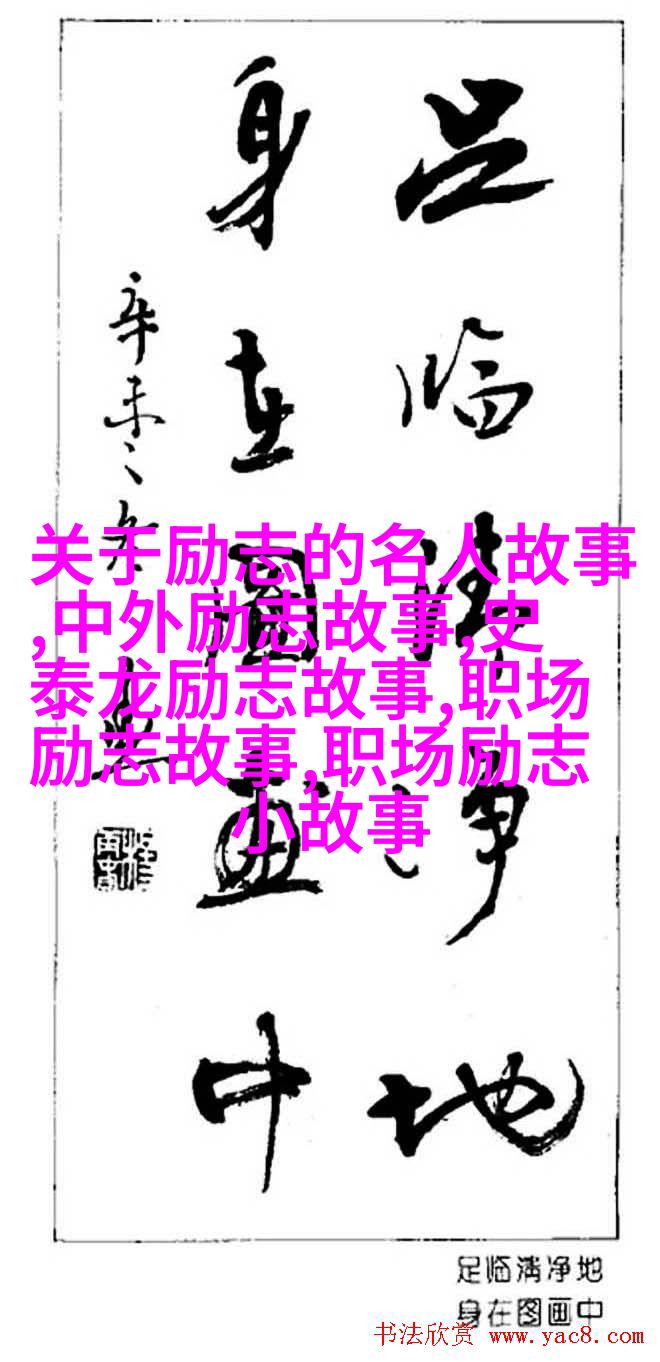 足临清净地
身在图画中
辛未之冬
关于励志的名人故事
,中外励志故事,史
泰龙励志故事,职场
励志故事,职场励志
小故事
足临清净地
身在图画中
书法欣赏 www.yac8.com